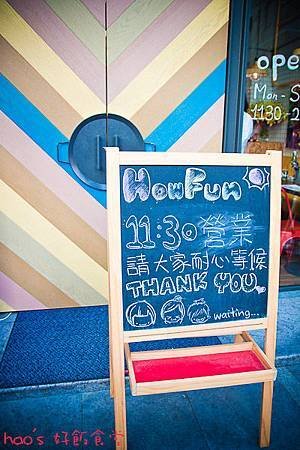 HowFun
11:30 營業
請大家耐心等候
THANK YOU
waiting...
ope
Mon-S
1130-2
hao's 好飯食堂